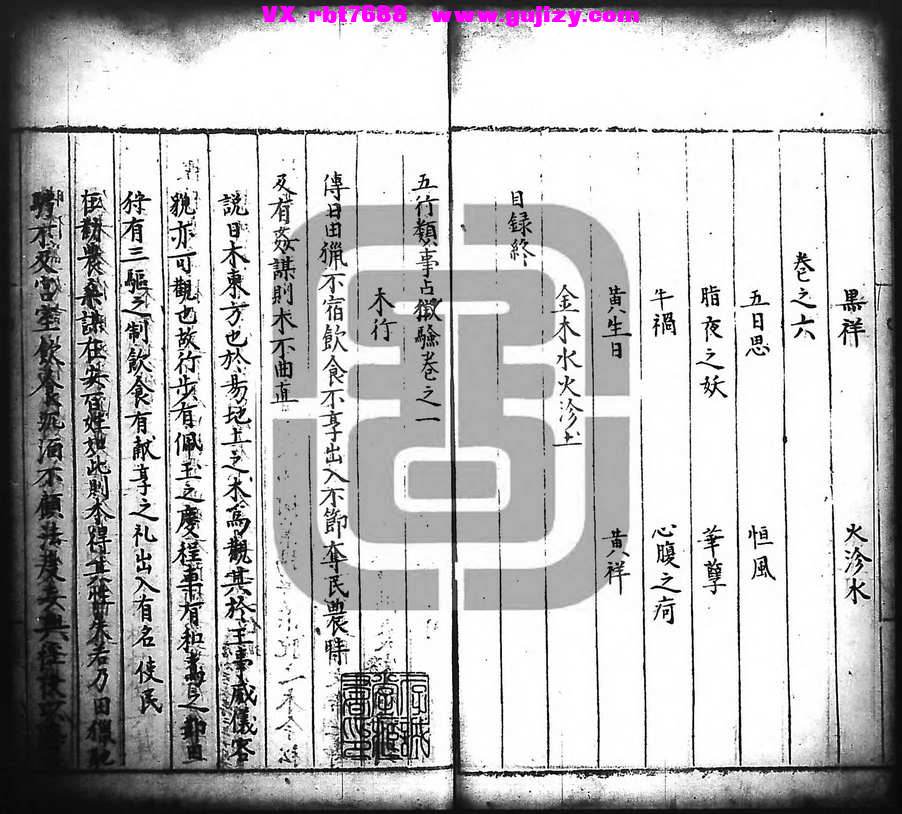 VX rbt7688 www.gujizy.com
黒祥 火沴水
卷之六
五曰思 恒風
脂夜之妖 華孽
牛禍 心腹之疴
黄生日 黄祥
金木水火沴土
目録終
五行類事占徵驗卷之一
木行
傳曰田獵不宿飲食不享出入不節奪民農時
及有姦謀則木不曲直
說曰木東方也於易地上之木爲觀其於王事威儀容
貌亦可觀也故行步有佩玉之度程車有和鸞之節田
狩有三驅之制飲食有獻享之礼出入有名使民
農桒謀在安百姓如此則木得其性矣若乃田獵
宮室飲食沉湎不顧法度